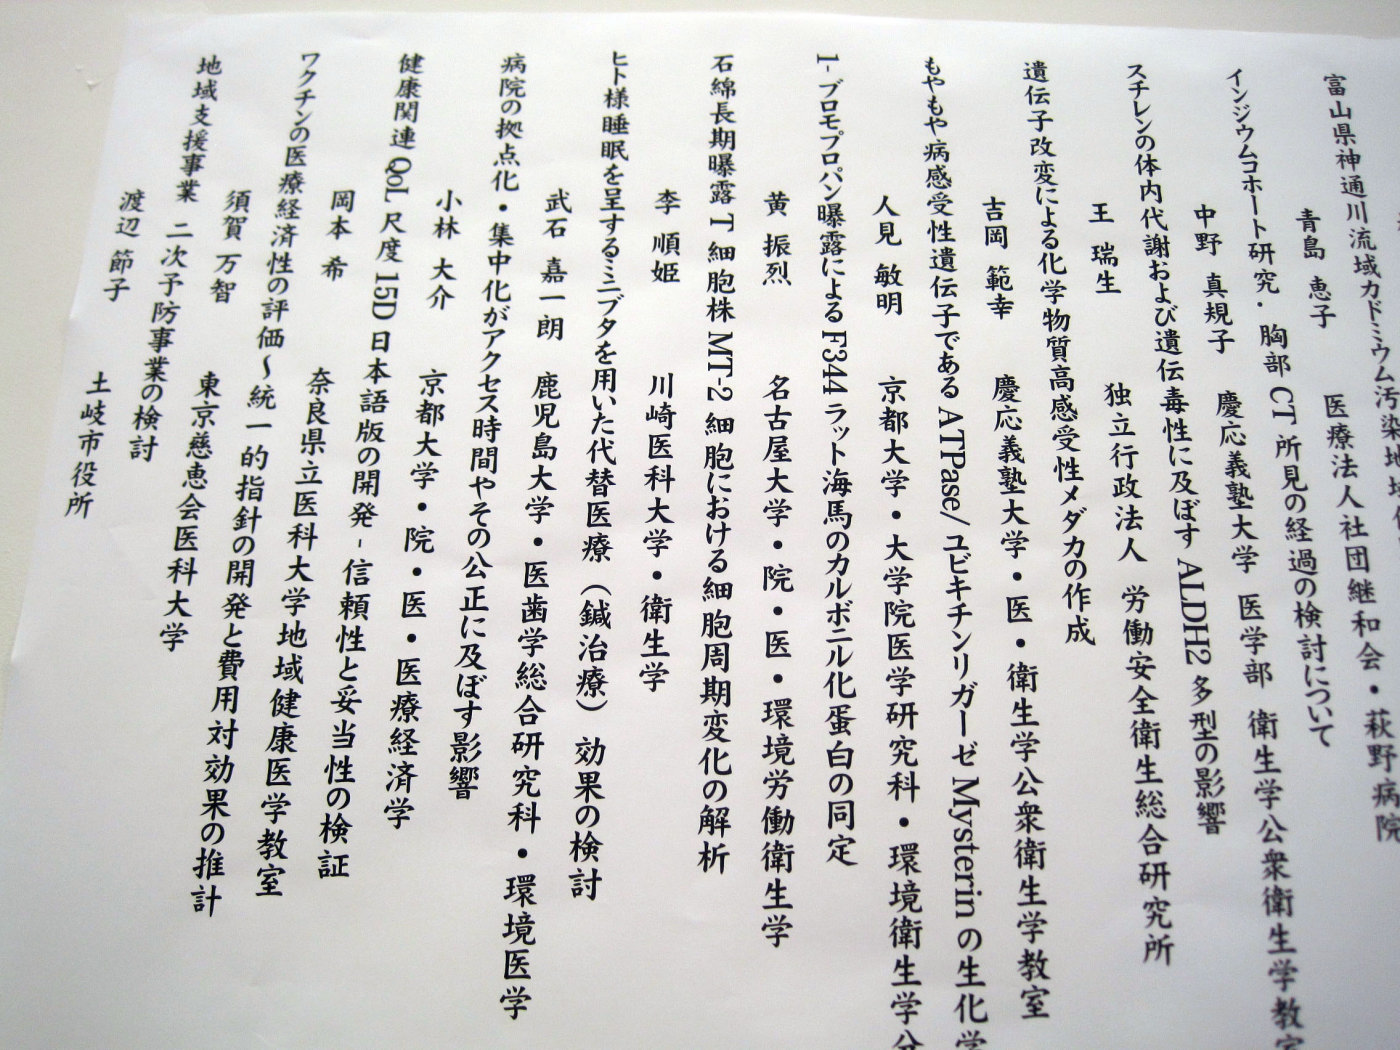 富山県神通川流域カドミウム汚染地域
青島 恵子 医療法人社団継和会・萩野病院
インジウムコホート研究. 胸部 CT 所見の経過の検討について
中野 真規子 慶応義塾大学 医学部 衛生学公衆衛生学教室
スチレンの体内代謝および遺伝毒性に及ぼす ALDH2 多型の影響
王 瑞生 独立行政法人 労働安全衛生総合研究所
遺伝子改変による化学物質高感受性メダカの作成
吉岡 範幸 慶応義塾大学・医・衛生学公衆衛生学教室
もやもや病感受性遺伝子である ATPase/ユビキチンリガーゼ Mysterin の生化学
人見 敏明 京都大学・大学院医学研究科・環境衛生学分
1-ブロモプロパン曝露による F344 ラット海馬のカルボニル化蛋白の同定
黄 振烈 名古屋大学・院・医・環境労働衛生学
石綿長期曝露 T 細胞株 MT-2 細胞における細胞周期変化の解析
李 順姫 川崎医科大学・衛生学
ヒト様睡眠を呈するミニブタを用いた代替医療（鍼治療）効果の検討
武石 嘉一朗 鹿児島大学・医歯学総合研究科・環境医学
病院の拠点化・集中化がアクセス時間やその公正に及ぼす影響
小林 大介 京都大学・院・医・医療経済学
健康関連 QoL 尺度 15D 日本語版の開発 - 信頼性と妥当性の検証
岡本 希 奈良県立医科大学地域健康医学教室
ワクチンの医療経済性の評価～統一的指針の開発と費用対効果の推計
須賀 万智 東京慈恵会医科大学
地域支援事業 二次予防事業の検討
渡辺 節子 土岐市役所